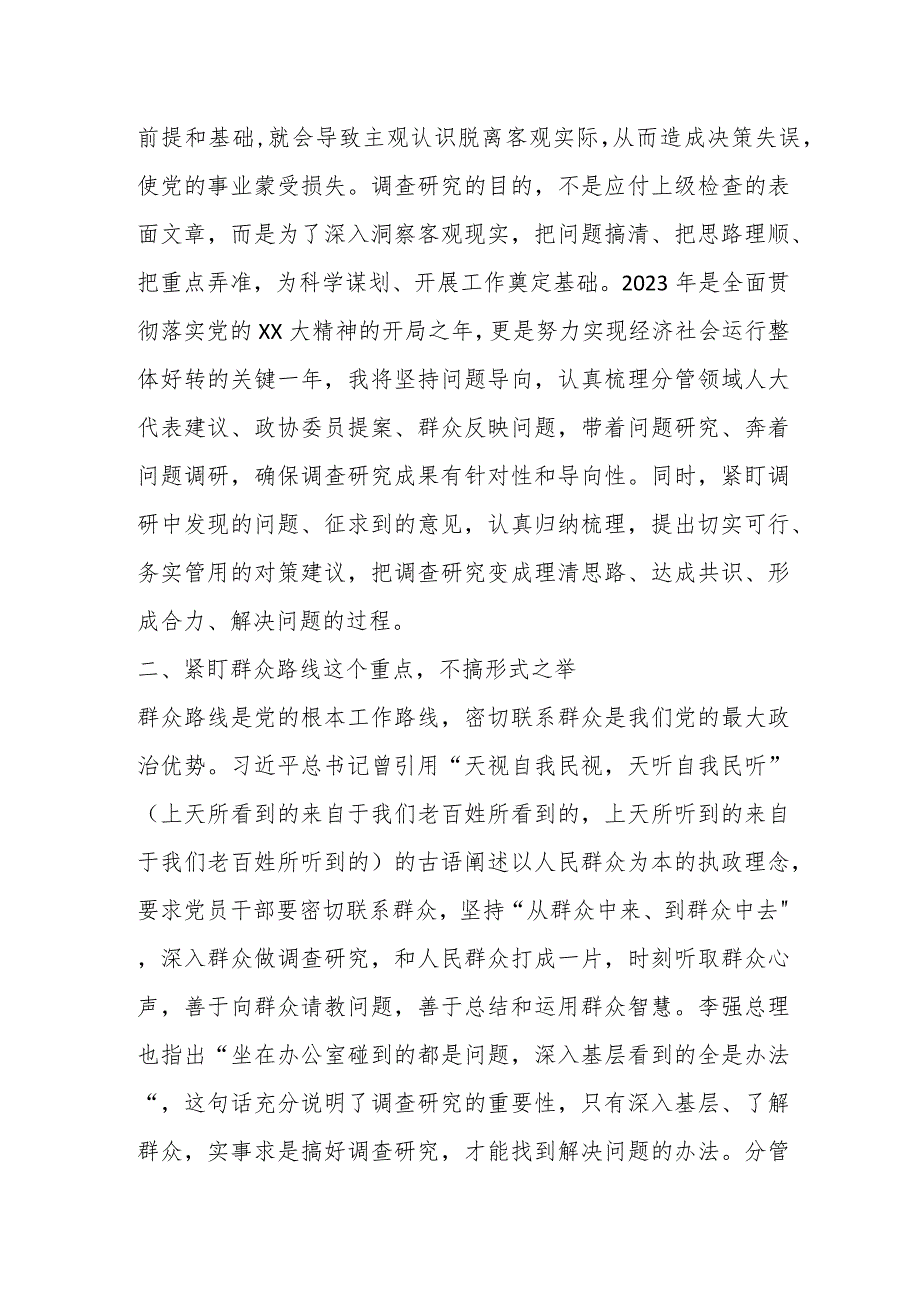 前提和基础,就会导致主观认识脱离客观实际,从而造成决策失误,
使党的事业蒙受损失。调查研究的目的，不是应付上级检查的表
面文章，而是为了深入洞察客观现实，把问题搞清、把思路理顺、
把重点弄准，为科学谋划、开展工作奠定基础。2023 年是全面贯
彻落实党的 XX 大精神的开局之年,更是努力实现经济社会运行整
体好转的关键一年，我将坚持问题导向，认真梳理分管领域人大
代表建议、政协委员提案、群众反映问题，带着问题研究、奔着
问题调研，确保调查研究成果有针对性和导向性。同时，紧盯调
研中发现的问题、征求到的意见，认真归纳梳理，提出切实可行、
务实管用的对策建议，把调查研究变成理清思路、达成共识、形
成合力、解决问题的过程。
二、紧盯群众路线这个重点，不搞形式之举
群众路线是党的根本工作路线，密切联系群众是我们党的最大政
治优势。习近平总书记曾引用“天视自我民视，天听自我民听”
（上天所看到的来自于我们老百姓所看到的，上天所听到的来自
于我们老百姓所听到的）的古语阐述以人民群众为本的执政理念，
要求党员干部要密切联系群众，坚持“从群众中来、到群众中去"
，深入群众做调查研究，和人民群众打成一片，时刻听取群众心
声，善于向群众请教问题，善于总结和运用群众智慧。李强总理
也指出“坐在办公室碰到的都是问题，深入基层看到的全是办法
“，这句话充分说明了调查研究的重要性，只有深入基层、了解
群众，实事求是搞好调查研究，才能找到解决问题的办法。分管